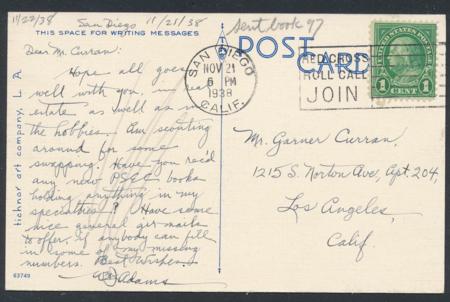 11/22/38
San Diego 11/21/38
Sent book 97
THIS SPACE FOR WRITING MESSAGES
POST CARD
Dear Mr. Curran:
Hope all goes
well with you, in real
estate as well as in
the hobbies. Am scouting
around for some
swapping. Have you rec'd
any new PSCC books
holding anything in my
specialties? Have some
nice general airmails
to offer, if anybody can fill
in some of my missing
numbers. Best Wishes,
Adams
tichnor art company, L. A.
63749
SAN DIEGO
NOV 21
6 PM
1938
CALIF.
RED CROSS
ROLL CALL
JOIN
UNITED STATES POSTAGE
1 CENT 1
Mr. Garner Curran,
1215 S. Norton Ave, Apt. 204,
Los Angeles,
Calif.